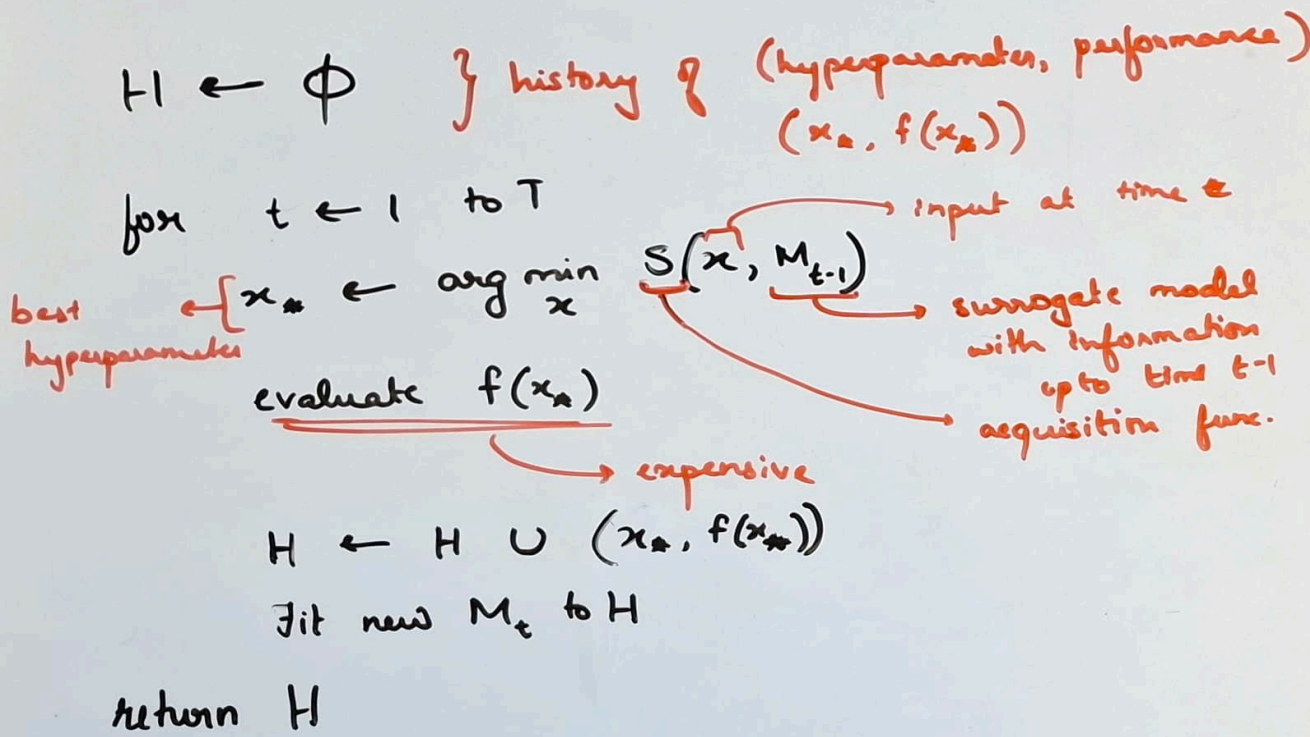 H ← ϕ } history of (hyperparameter, performance)
(x*, f(x*))
for t ← 1 to T
input at time t
best hyperparameter ← [ x* ← arg min x S(x, M t-1)
surrogate model
with information
upto time t-1
acquisition func.
evaluate f(x*)
expensive
H ← H ∪ (x*, f(x*))
Fit new Mt to H
return H